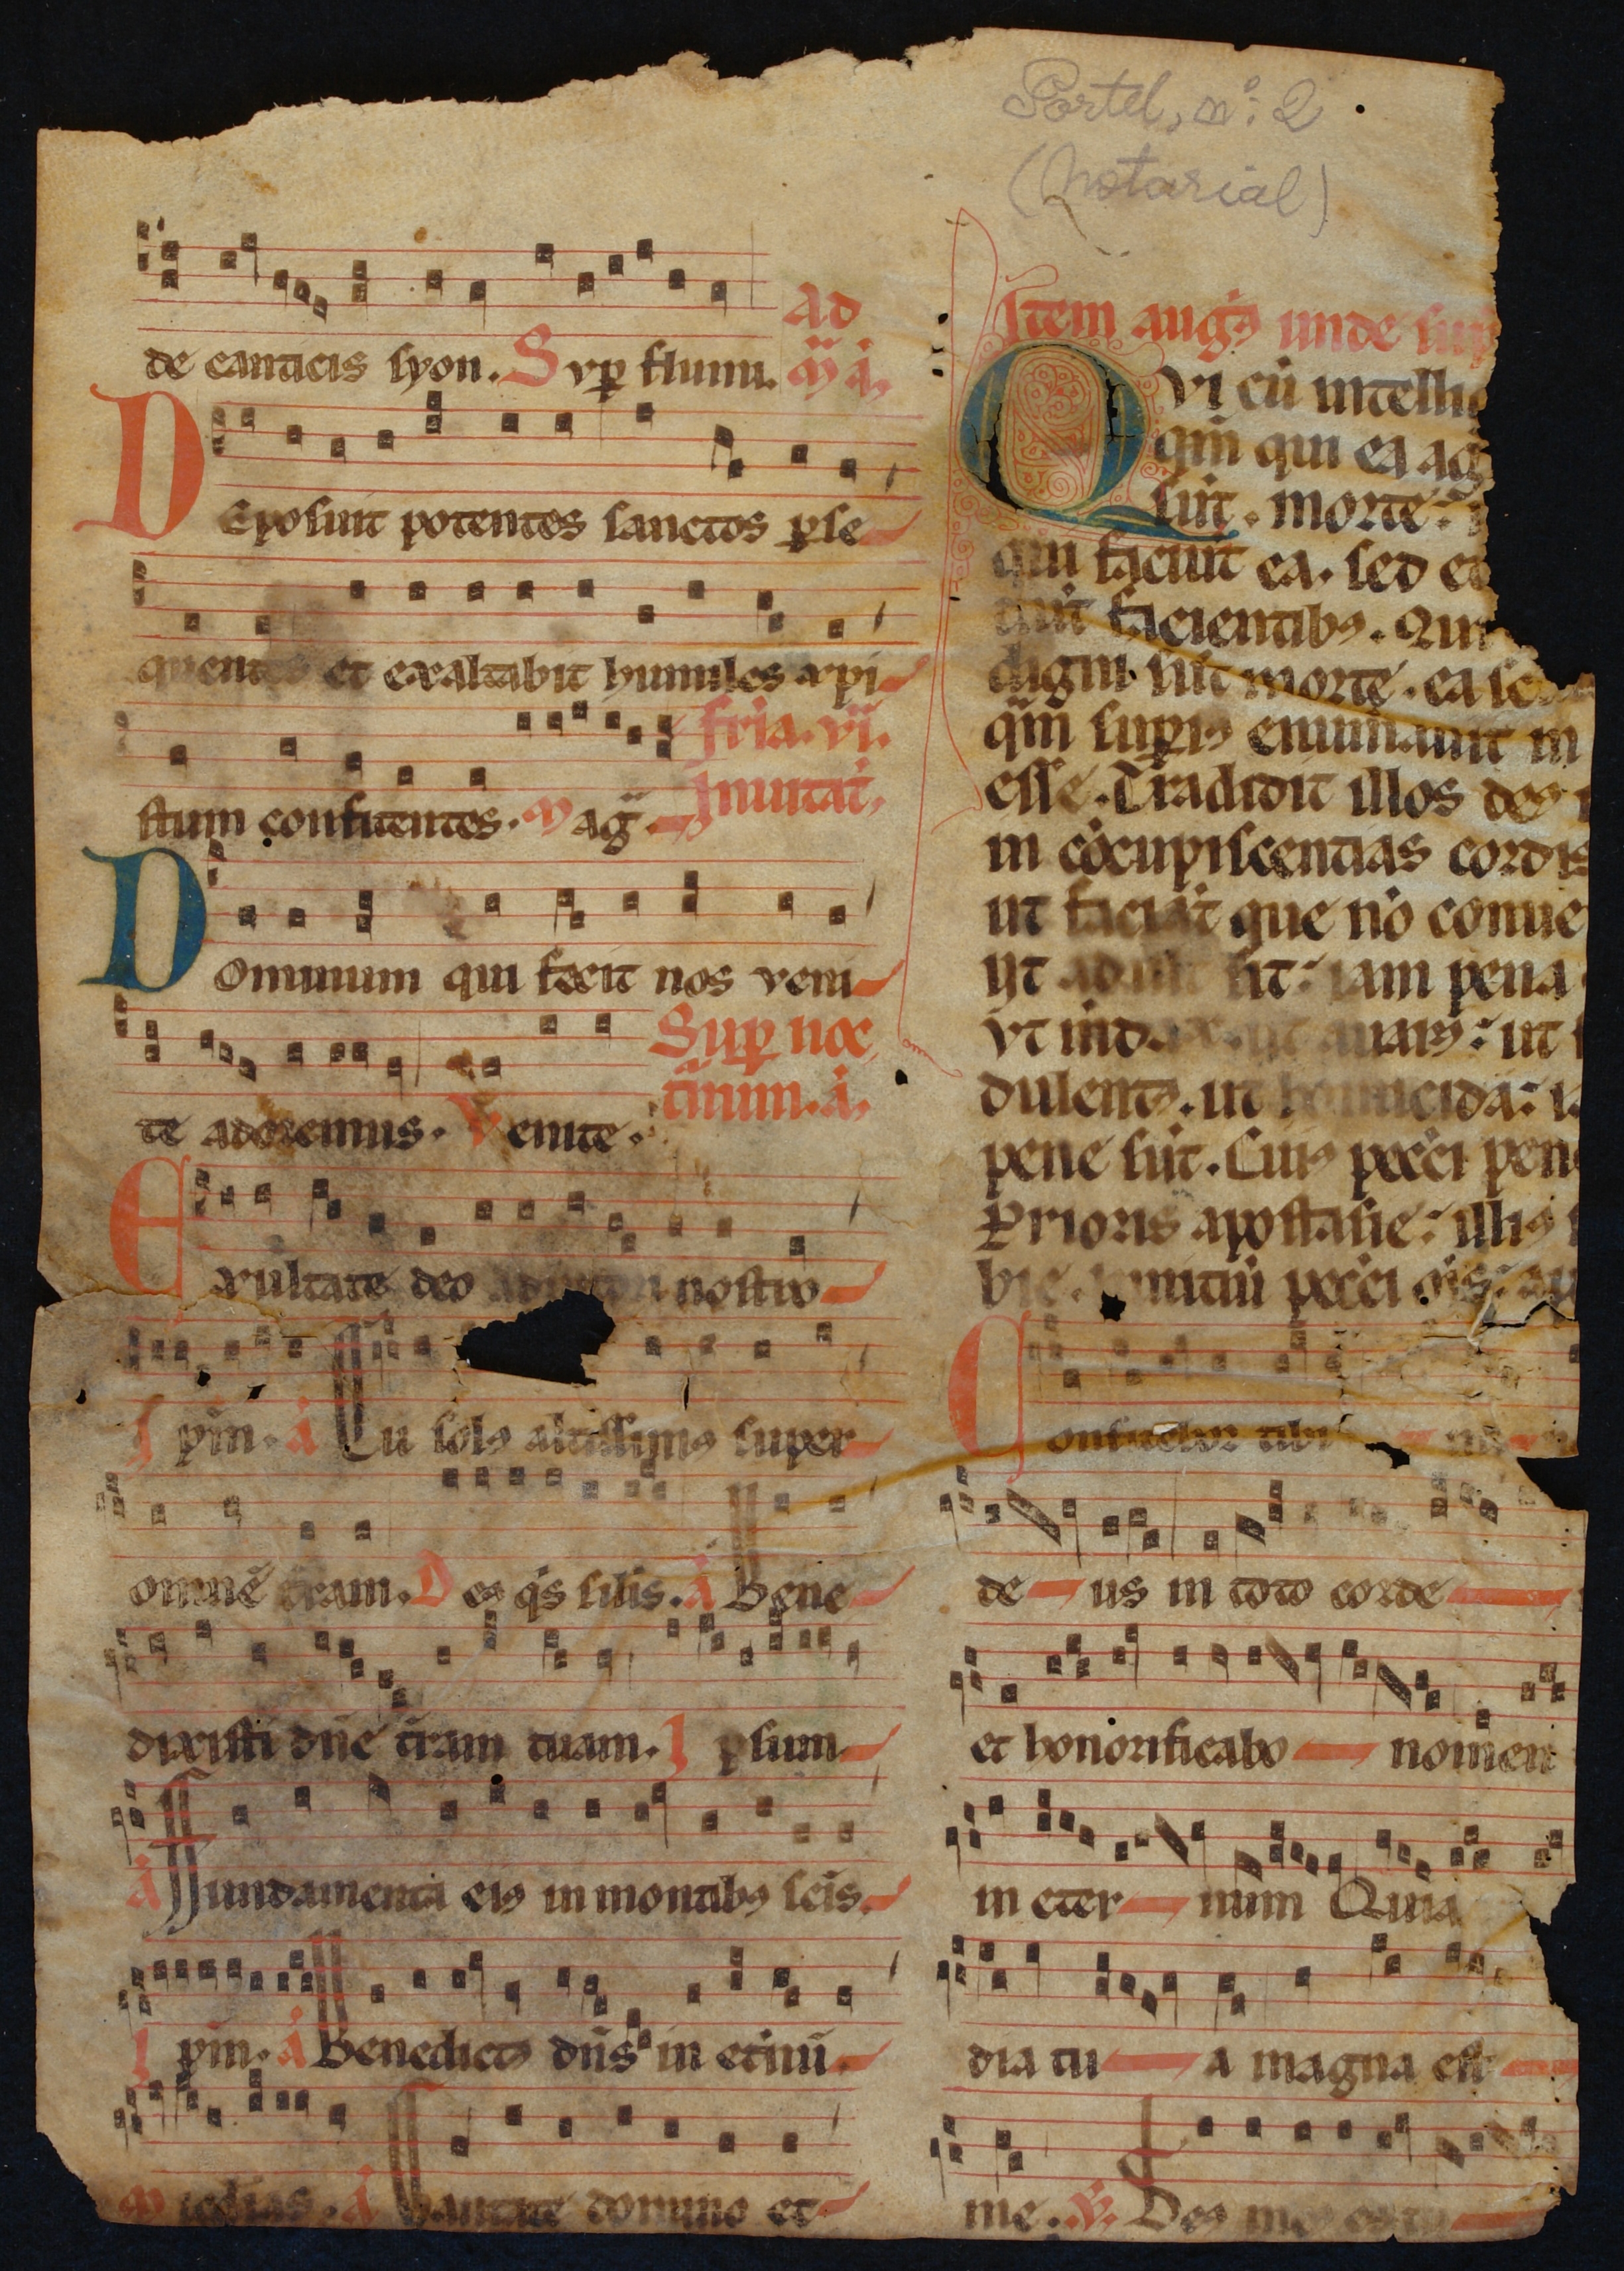 Portel, nº: 2
(Notarial)
de canticis syon. Sup̲ flumi. Ad
m̃ a᷒.
Deposuit potentes sanctos p̲se
quentes et exaltabit humiles xp̲i
stum confitentes. Mag̃. fr̃ia. vi.
Inuitat᷒.
Dominum qui fecit nos veni
te adoremus. Venite. Sup̲ noc
t̃num. a᷒.
Exultate deo adiutori nostro
Ip̃m. a᷒ Tu solꝰ altissimꝰ super
omnẽ t̃ram. Deꝰ q̃s silis. a᷒ Bene
dixisti dñe t̃ram tuam. Ip̲sum
a᷒ Fundamenta eiꝰ in montibꝰ sc̃is.
Ip̃m. a᷒ Benedictꝰ dñs in et̃nũ.
M edias. a᷒ Cantate domino et
Item augꝰ unde sup
Qui cũ intelli
qm̃ qui ea ag
sũt. morte:
qui faciũt ea. sed et
facientibꝰ. Qui
digni sũt morte. ea
qm̃ sup̲iꝰ enum̃auit in
esse. Tradidit illos deꝰ
in cõcupiscentias cordis
ut faciãt que nõ conue
ut sit: iam pena
vt auarꝰ: ut
dulentꝰ. ut homicida:
pene sũt. Cuiꝰ pecc̃i pen
Prioris apostasie: illiꝰ
initiũ pecc̃i
Confitebor tibi
de us in toto corde
et honorificabo nomen
in eter num Quia
dia tu a magna est
me. ℣. Deꝰ